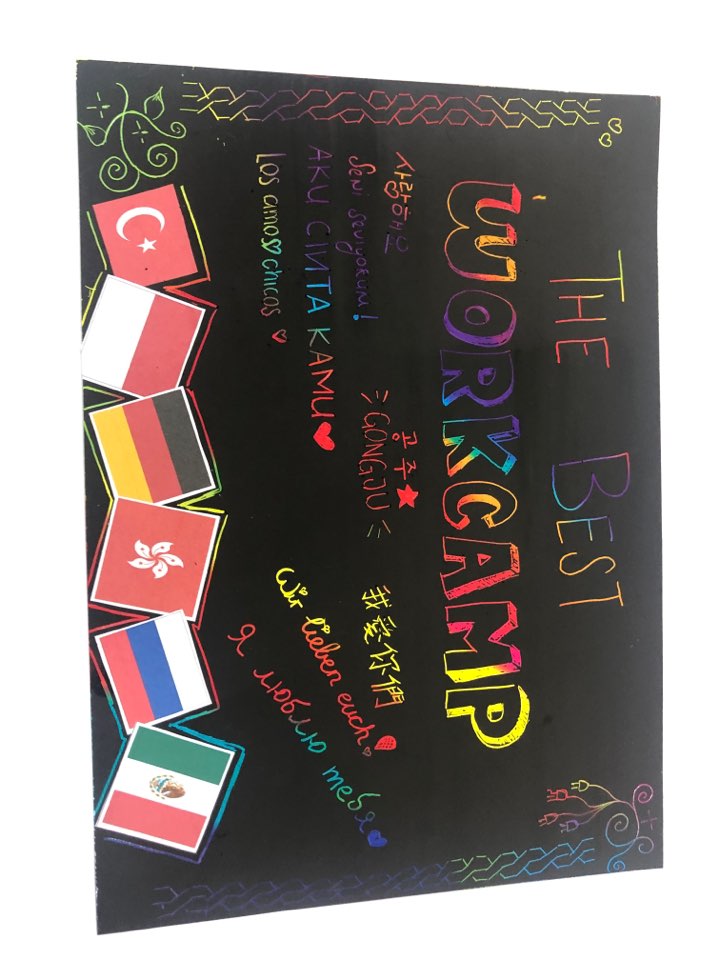 THE BEST
WORKCAMP
사랑해요
Seni seviyorum!
AKU CINTA KAMU
Los amo chicas
공주
GONGJU
我愛你們
Wir lieben euch
Я люблю тебя